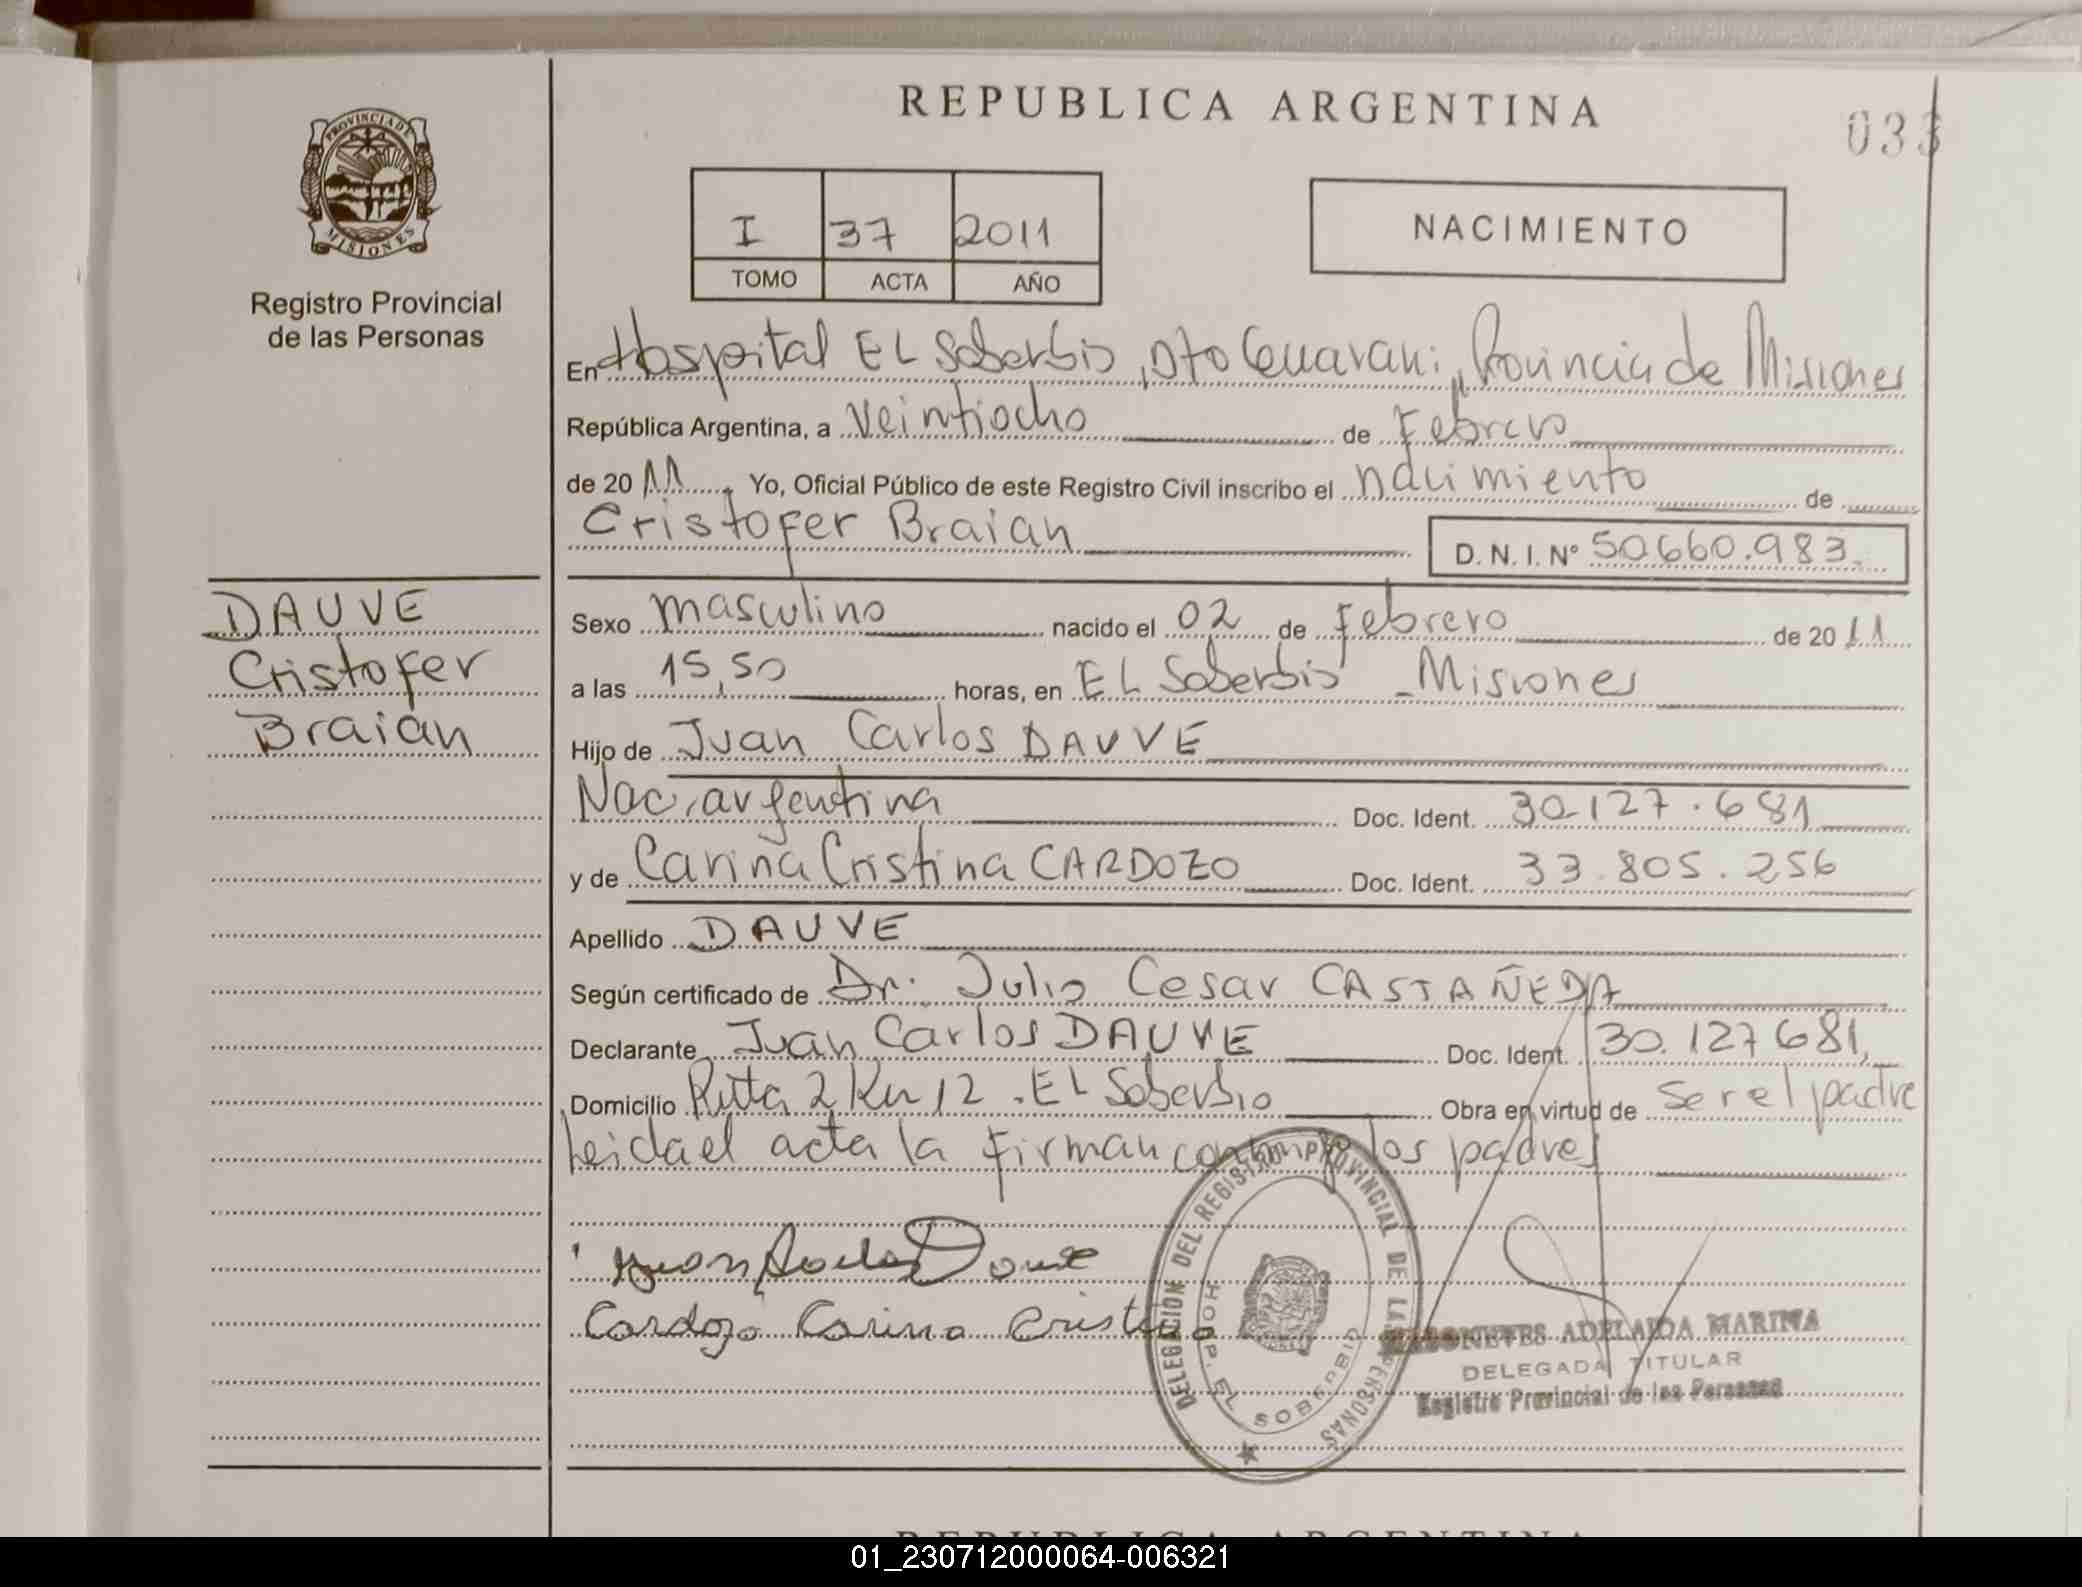 REPUBLICA ARGENTINA
033
PROVINCIA DE
MISIONES
Registro Provincial
de las Personas
I 37 2011
TOMO ACTA AÑO
NACIMIENTO
En Hospital EL Soberbio, Dto Guarani, Provincia de Misiones
República Argentina, a veintiocho de Febrero
de 20 11. Yo, Oficial Público de este Registro Civil inscribo el nacimiento de
Cristofer Braian D. N. I. Nº 50.660.983.
DAUVE
Cristofer
Braian
Sexo masculino nacido el 02 de Febrero de 20 11
a las 15,50 horas, en EL Soberbio - Misiones
Hijo de Juan Carlos DAUVE
Nac. argentina Doc. Ident. 30.127.681
y de Carina Cristina CARDOZO Doc. Ident. 33.805.256
Apellido DAUVE
Según certificado de Dr. Julio Cesar CASTAÑEDA
Declarante Juan Carlos DAUVE Doc. Ident. 30.127681,
Domicilio Ruta 2 Km 12. EL Soberbio Obra en virtud de ser el padre
Leida el acta la firman conmigo los padres
Cardozo Carina Cristina
DELEGACION DEL REGISTRO PROVINCIAL DE LAS PERSONAS
HOSP. EL SOBERBIO
ADELAIDA MARINA
DELEGADA TITULAR
Registro Provincial de las Personas
REPUBLICA ARGENTINA
01_230712000064-006321